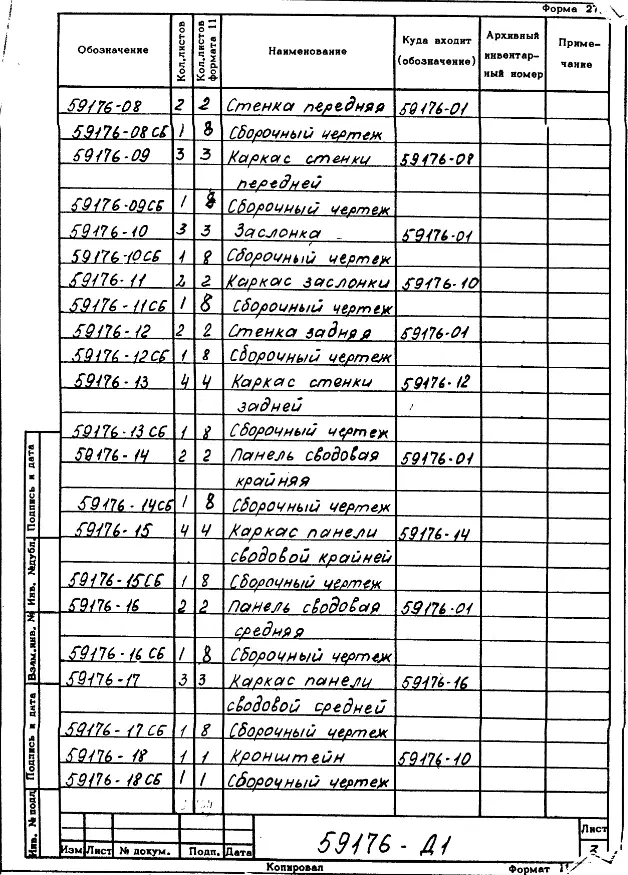 Форма 2
Обозначение Кол.листов Кол.листов формата 11 Наименование Куда входит (обозначение) Архивный инвентар-ный номер Приме-чание
59176-08 2 2 Стенка передняя 59176-01
59176-08СБ 1 8 Сборочный чертеж
59176-09 3 3 Каркас стенки 59176-08
передней
59176-09СБ 1 8 Сборочный чертеж
59176-10 3 3 Заслонка 59176-01
59176-10СБ 1 8 Сборочный чертеж
59176-11 2 2 Каркас заслонки 59176-10
59176-11СБ 1 8 Сборочный чертеж
59176-12 2 2 Стенка задняя 59176-01
59176-12СБ 1 8 Сборочный чертеж
59176-13 4 4 Каркас стенки 59176-12
задней
59176-13СБ 1 8 Сборочный чертеж
59176-14 2 2 Панель сводовая 59176-01
крайняя
59176-14СБ 1 8 Сборочный чертеж
59176-15 4 4 Каркас панели 59176-14
сводовой крайней
59176-15СБ 1 8 Сборочный чертеж
59176-16 2 2 Панель сводовая 59176-01
средняя
59176-16СБ 1 8 Сборочный чертеж
59176-17 3 3 Каркас панели 59176-16
сводовой средней
59176-17СБ 1 8 Сборочный чертеж
59176-18 1 1 Кронштейн 59176-10
59176-18СБ 1 1 Сборочный чертеж
Подпись и дата
Инв. №дубл.
Взам.инв. №
Подпись и дата
Инв. № подл
59176-Д1
Лист
3
Изм Лист № докум. Подп. Дата
Копировал Формат 11